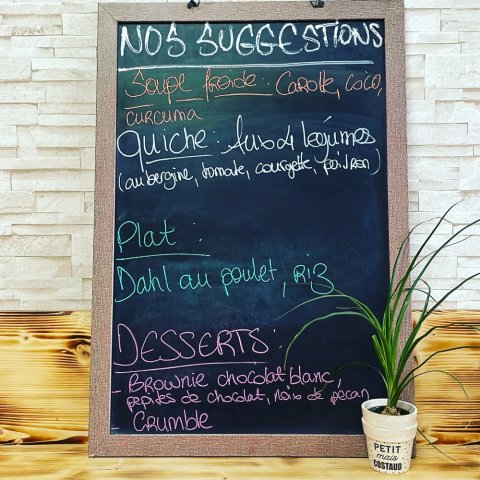 NOS SUGGESTIONS
Soupe froide : Carotte, coco,
curcuma
Quiche : Aux 4 légumes
(aubergine, tomate, courgette, poivron)
Plat :
Dahl au poulet, riz
DESSERTS :
- Brownie chocolat blanc,
pepites de chocolat, noix de pecan
- Crumble
PETIT
mais
COSTAUD